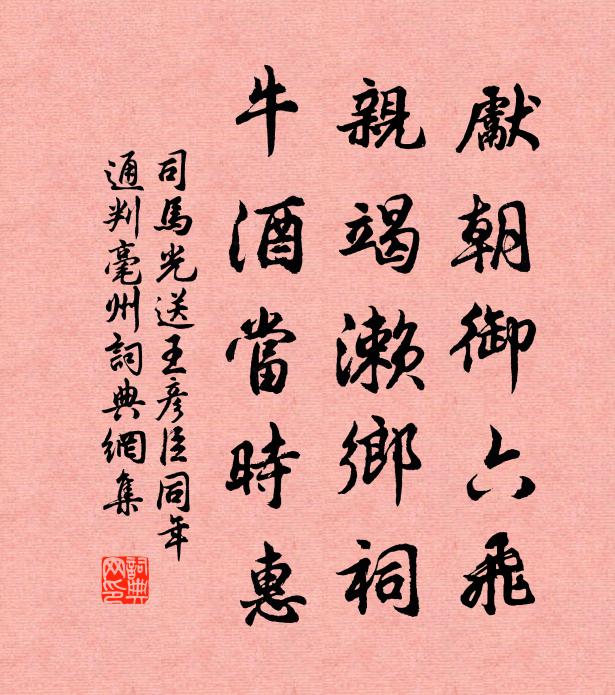 獻朝御六飛
親竭瀨鄉祠
牛酒當時惠
司馬光送王彥臣同年
通判毫州詞典網集
詞典
网印